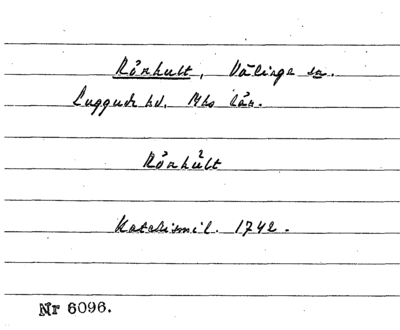 Rörhult, Välinge sn.
Luggude hd. Mhs län.
Rörhult
Katekismil. 1742.
Nr 6096.